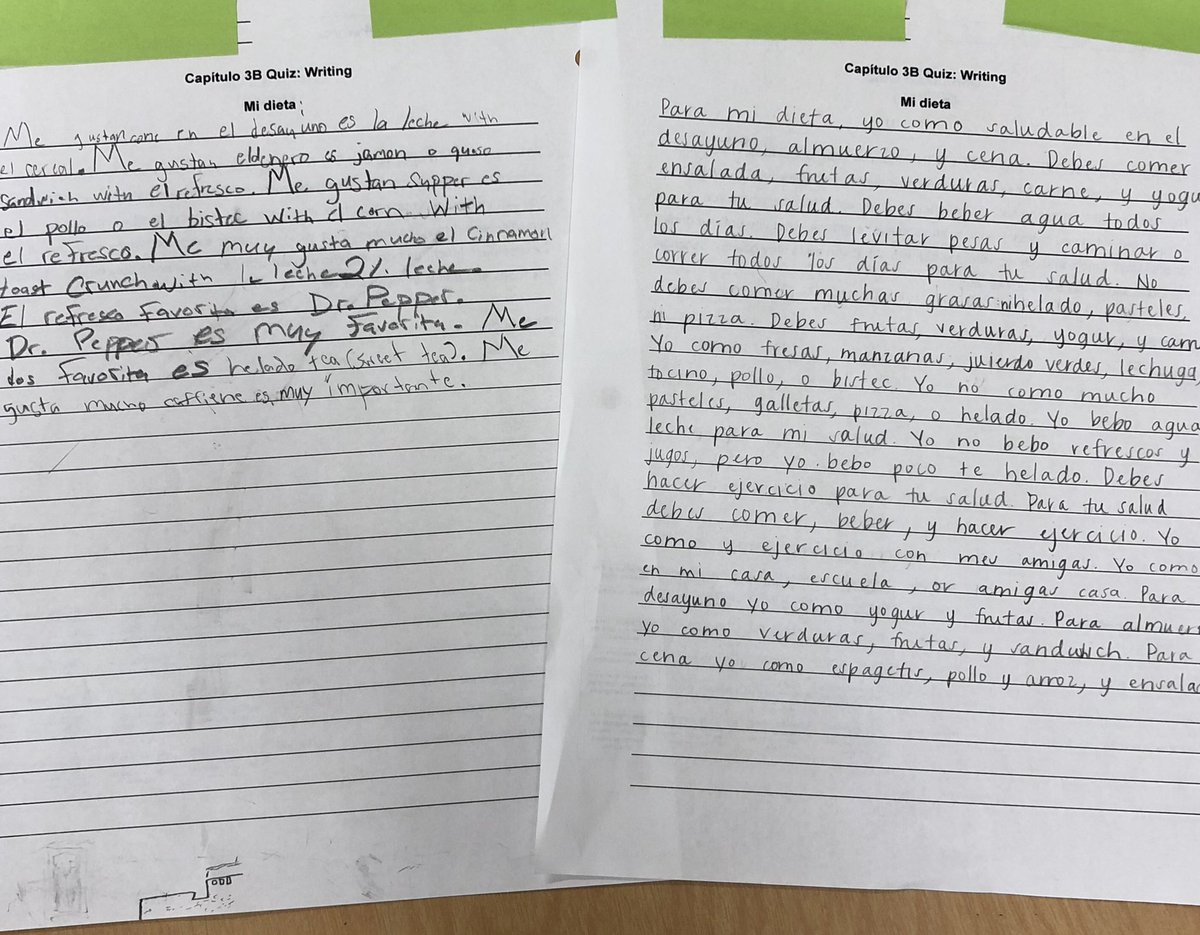 Capítulo 3B Quiz: Writing
Mi dieta
Me gustan en el desayuno es la leche with
el cereal. Me gustan es jamon o queso
Sandwich with el refresco. Me gustan Supper es
el pollo o el bistec with el corn. With
el refresco. Me muy gusta mucho el Cinnamon
toast Crunch with la leche 2% leche.
El refresco favorita es Dr. Pepper.
Dr. Pepper es muy favorita. Me
dos favorita es helado tea (sweet tea). Me
gusta mucho caffiene es muy importante.
Capítulo 3B Quiz: Writing
Mi dieta
Para mi dieta, yo como saludable en el
desayuno, almuerzo, y cena. Debes comer
ensalada, frutas, verduras, carne, y yogu
para tu salud. Debes beber agua todos
los días. Debes levitar pesas y caminar o
correr todos los días para tu salud. No
debes comer muchas grasas: ni helado, pasteles,
ni pizza. Debes frutas, verduras, yogur, y carn
Yo como fresas, manzanas, verdes, lechuga
tocino, pollo, o bistec. Yo no como mucho
pasteles, galletas, pizza, o helado. Yo bebo agua
leche para mi salud. Yo no bebo refrescos y
jugos, pero yo bebo poco te helado. Debes
hacer ejercicio para tu salud. Para tu salud
debes comer, beber, y hacer ejercicio. Yo
como y ejercicio con mes amigas. Yo como
en mi casa, escuela, or amigas casa. Para
desayuno yo como yogur y frutas. Para almuer
yo como verduras, frutas, y sandwich. Para
cena yo como espagetis, pollo y arroz, y ensalad